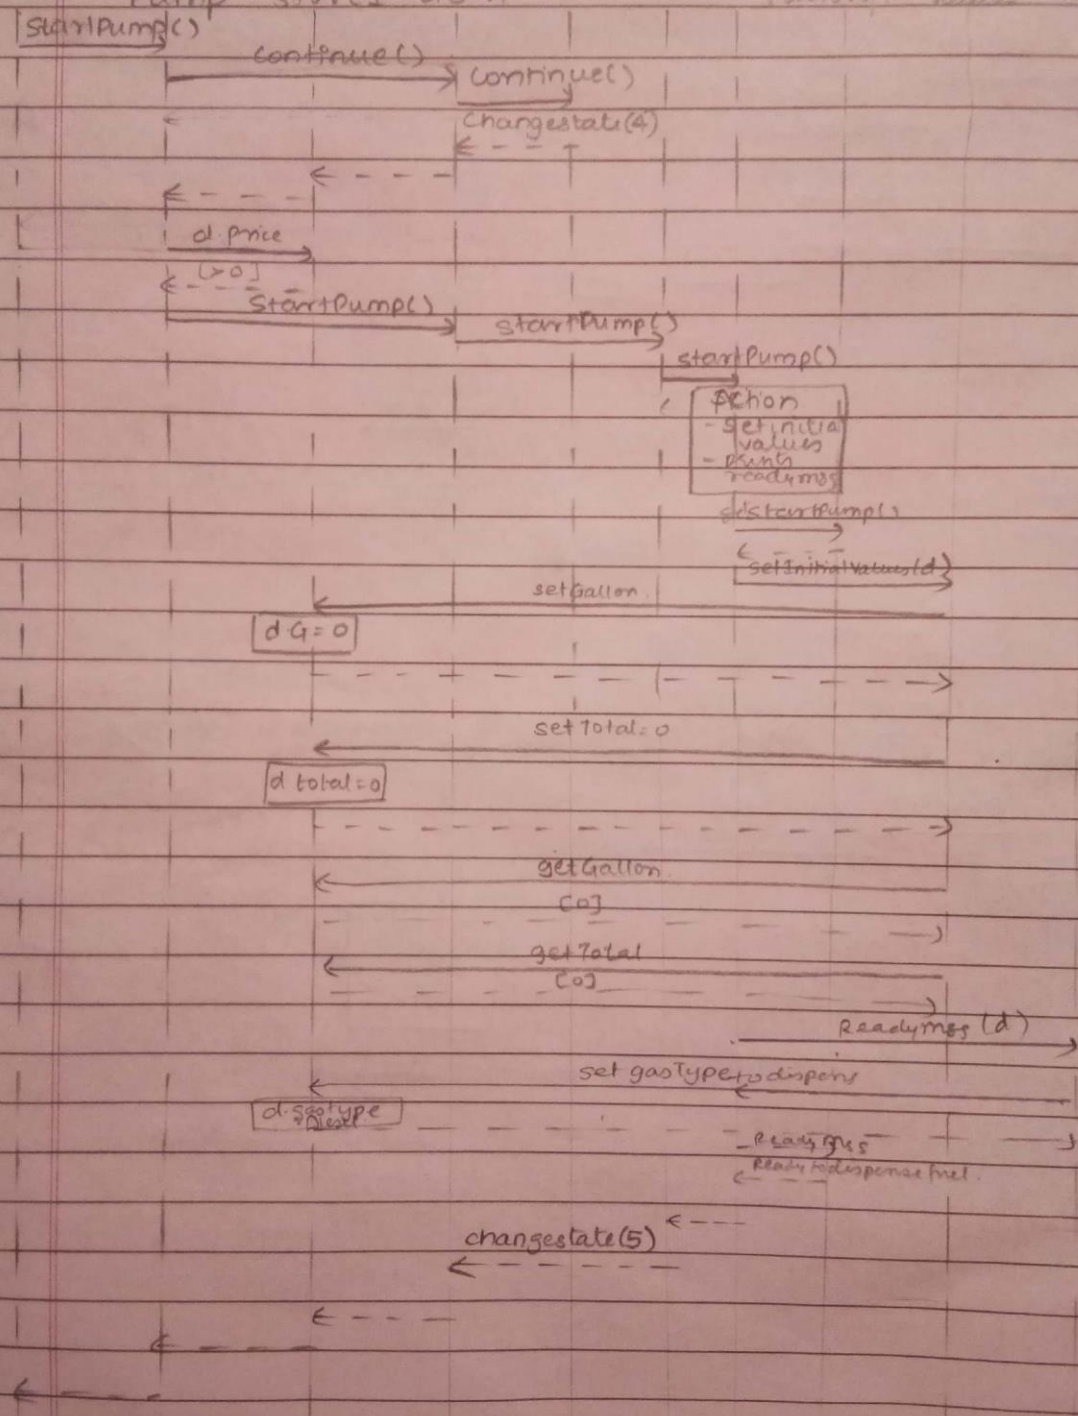 StartPump()
Continue()
Continue()
Changestate(4)
d.price
[>0]
StartPump()
startPump()
startPump()
Action
- setinitia
values
- prints
readymsg
StartPump()
setInitialvalues(d)
setGallon
d G = 0
set Total = 0
d total = 0
getGallon
[0]
getTotal
[0]
Readymsg (d)
set gasType to dispens
d.gastype
Diesel
Readymsg
Ready to dispense fuel.
changestate(5)